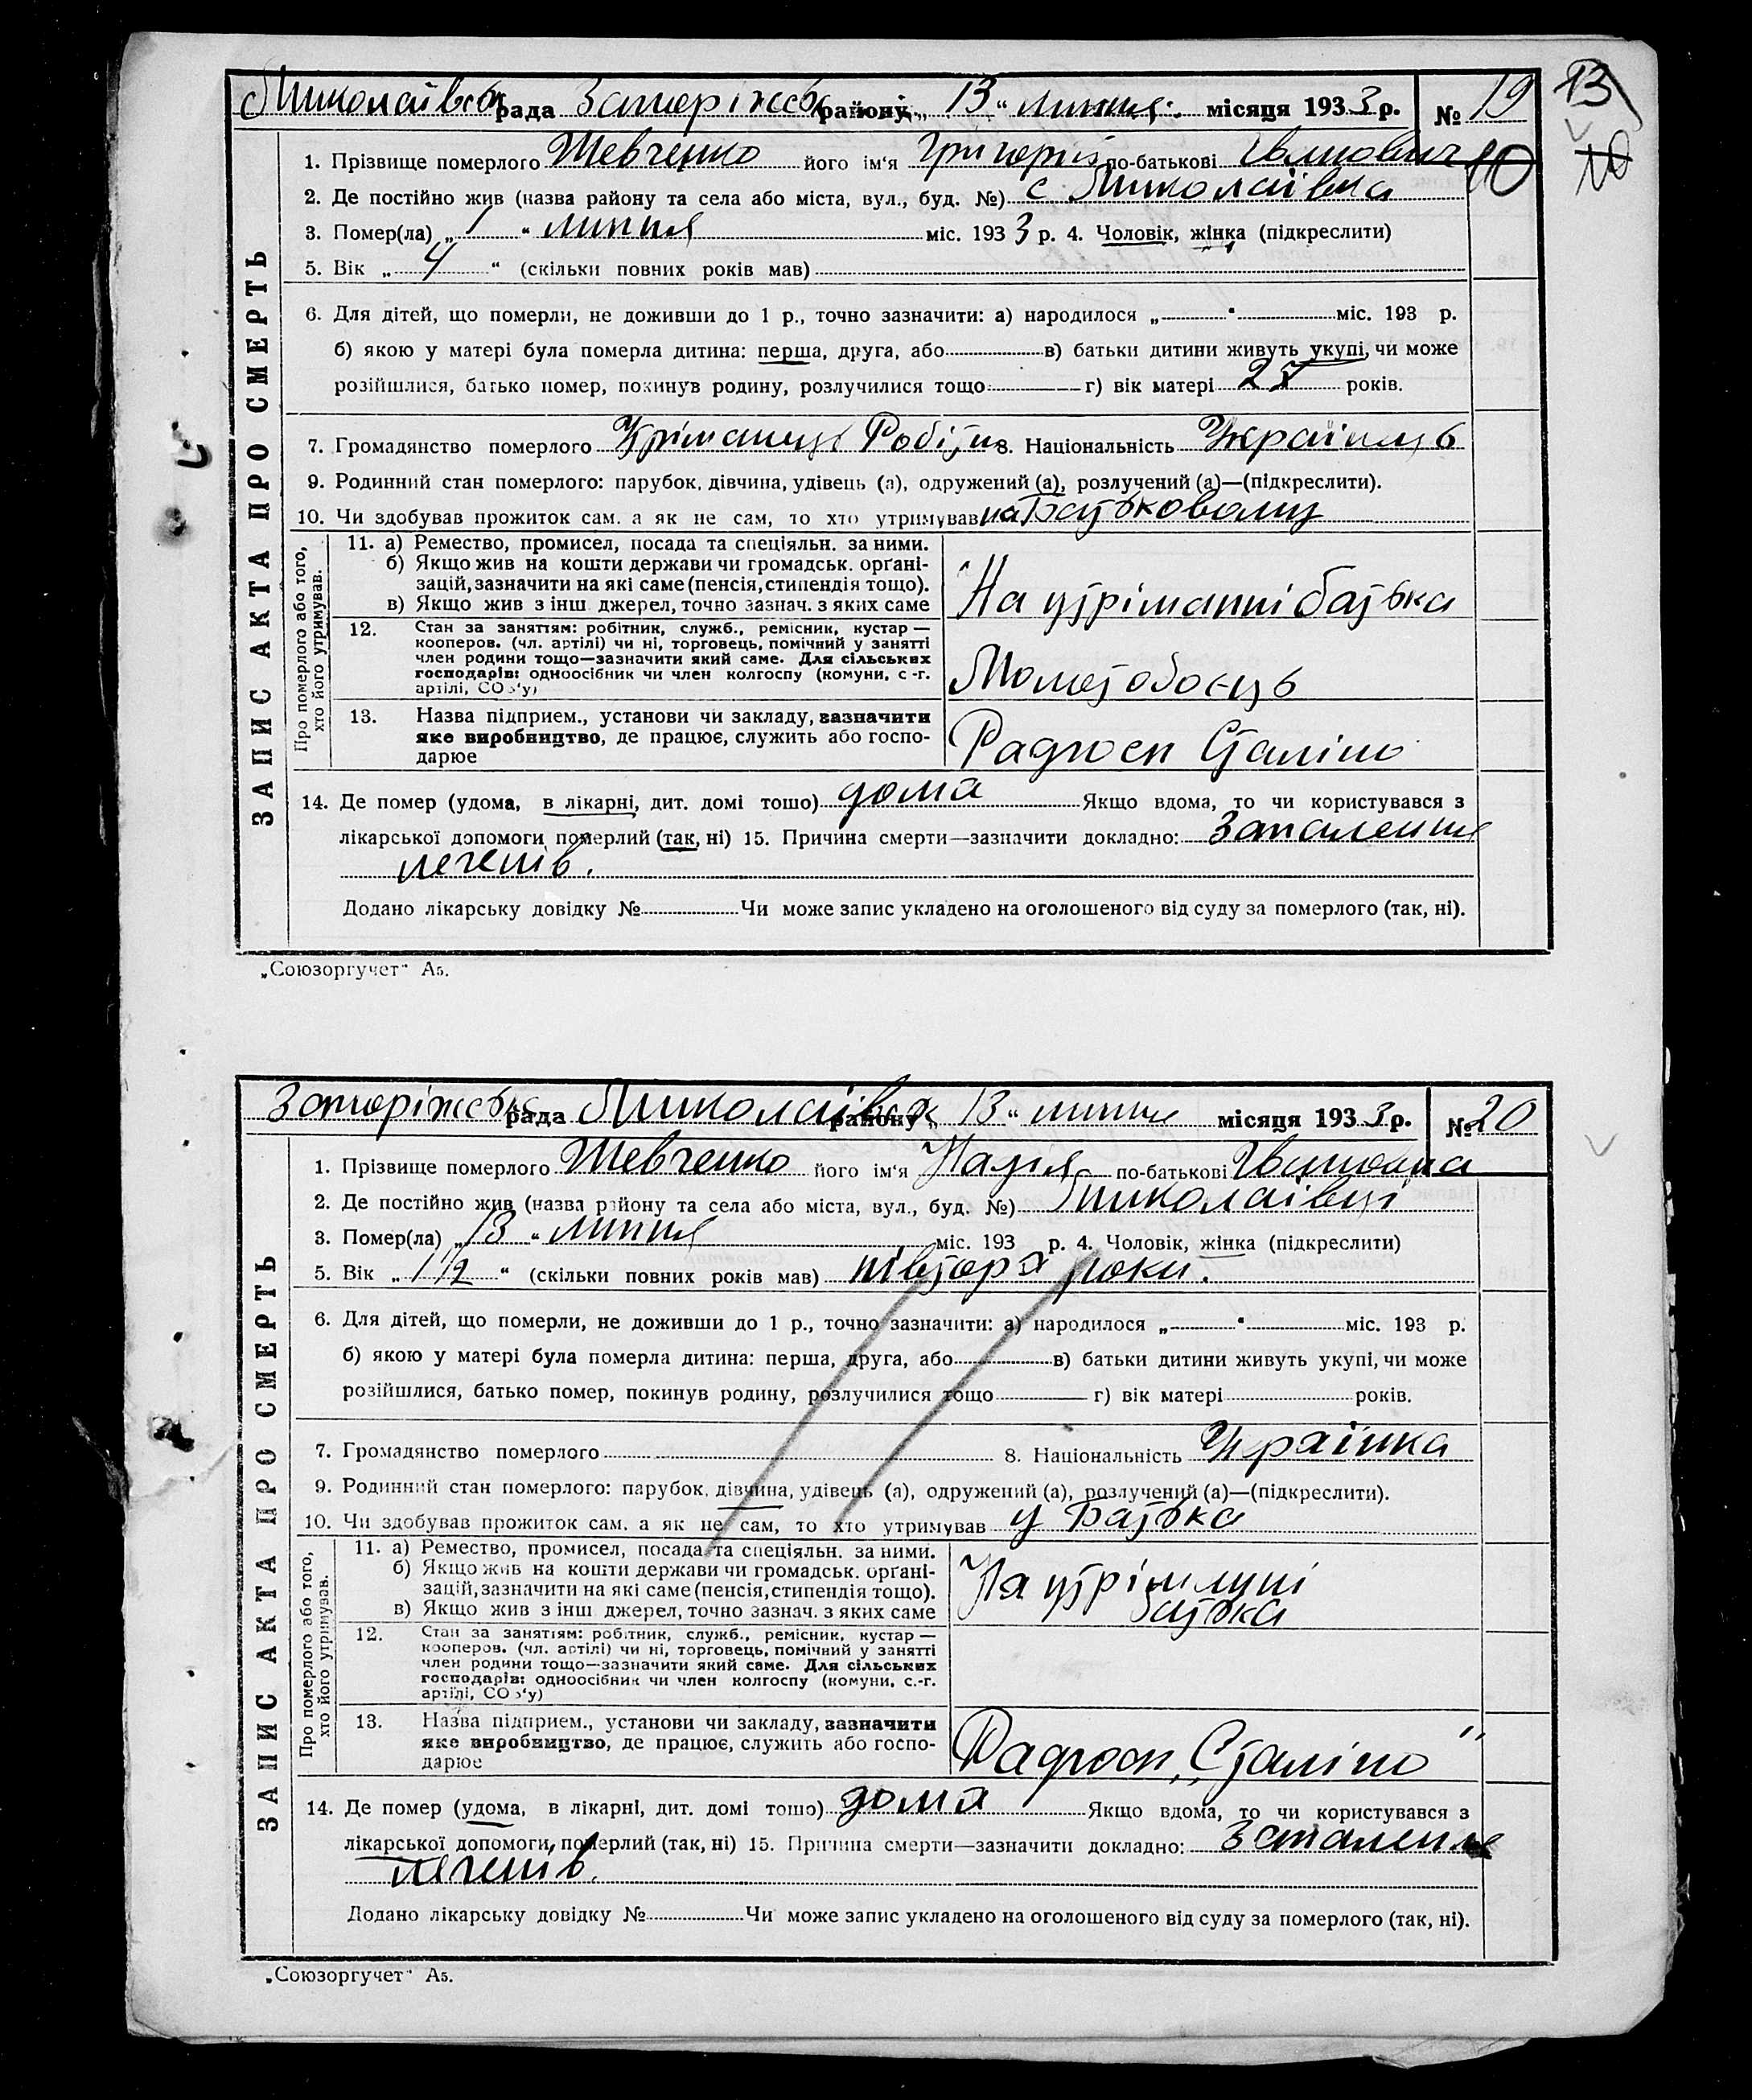 Миколаївськ рада Запоріжськ району „ 13 “ липня місяця 1933 р. № 19
13
10
10
ЗАПИС АКТА ПРО СМЕРТЬ
1. Прізвище померлого Шевченко його ім'я Григорій по-батькові Іванович
2. Де постійно жив (назва району та села або міста, вул., буд. №) с Миколаївка
3. Помер(ла) „ 1 “ липня міс. 1933 р. 4. Чоловік, жінка (підкреслити)
5. Вік „ 4 “ (скільки повних років мав)
6. Для дітей, що померли, не доживши до 1 р., точно зазначити: а) народилося „ “ міс. 193 р.
б) якою у матері була померла дитина: перша, друга, або в) батьки дитини живуть укупі, чи може
розійшлися, батько помер, покинув родину, розлучилися тощо г) вік матері 27 років.
7. Громадянство померлого Робітн 8. Національність Українець
9. Родинний стан померлого: парубок, дівчина, удівець (а), одружений (а), розлучений (а)—(підкреслити).
10. Чи здобував прожиток сам. а як не сам, то хто утримував на Батьковому
Про померлого або того, хто його утримував.
11. а) Ремество, промисел, посада та спеціяльн. за ними.
б) Якщо жив на кошти держави чи громадськ. орґані-
зацій, зазначити на які саме (пенсія, стипендія тощо).
в) Якщо жив з інш джерел, точно зазнач. з яких саме
На утріманні батька
12. Стан за заняттям: робітник, служб., ремісник, кустар —
кооперов. (чл. артілі) чи ні, торговець, помічний у занятті
член родини тощо—зазначити який саме. Для сільських
господарів: одноосібник чи член колгоспу (комуни, с-г.
артілі, СОЗ'у)
13. Назва підприєм., установи чи закладу, зазначити
яке виробництво, де працює, служить або госпо-
дарює
Радгосп Сталіно
14. Де помер (удома, в лікарні, дит. домі тошо) дома Якщо вдома, то чи користувався з
лікарської допомоги померлий (так, ні) 15. Причина смерти—зазначити докладно: Запалення
легенів.
Додано лікарську довідку № Чи може запис укладено на оголошеного від суду за померлого (так, ні).
„Союзоргучет“ А5.
Запоріжська рада Миколаївск району „ 13 “ липня місяця 1933 р. № 20
ЗАПИС АКТА ПРО СМЕРТЬ
1. Прізвище померлого Шевченко його ім'я Надія по-батькові Івановна
2. Де постійно жив (назва району та села або міста, вул., буд. №) Миколаївці
3. Помер(ла) „ 13 “ липня міс. 193 р. 4. Чоловік, жінка (підкреслити)
5. Вік „ 1 1/2 “ (скільки повних років мав) півтора роки.
6. Для дітей, що померли, не доживши до 1 р., точно зазначити: а) народилося „ “ міс. 193 р.
б) якою у матері була померла дитина: перша, друга, або в) батьки дитини живуть укупі, чи може
розійшлися, батько помер, покинув родину, розлучилися тощо г) вік матері років.
7. Громадянство померлого 8. Національність Українка
9. Родинний стан померлого: парубок, дівчина, удівець (а), одружений (а), розлучений (а)—(підкреслити).
10. Чи здобував прожиток сам. а як не сам, то хто утримував у Батька
Про померлого або того, хто його утримував.
11. а) Ремество, промисел, посада та спеціяльн. за ними.
б) Якщо жив на кошти держави чи громадськ. орґані-
зацій, зазначити на які саме (пенсія, стипендія тощо).
в) Якщо жив з інш джерел, точно зазнач. з яких саме
На утріманні
батька
12. Стан за заняттям: робітник, служб., ремісник, кустар —
кооперов. (чл. артілі) чи ні, торговець, помічний у занятті
член родини тощо—зазначити який саме. Для сільських
господарів: одноосібник чи член колгоспу (комуни, с.-г.
артілі, СОЗ'у)
13. Назва підприєм., установи чи закладу, зазначити
яке виробництво, де працює, служить або госпо-
дарює
Радгосп „Сталіно“
14. Де помер (удома, в лікарні, дит. домі тошо) дома Якщо вдома, то чи користувався з
лікарської допомоги померлий (так, ні) 15. Причина смерти—зазначити докладно: Запалення
легенів.
Додано лікарську довідку № Чи може запис укладено на оголошеного від суду за померлого (так, ні).
„Союзоргучет“ А5.